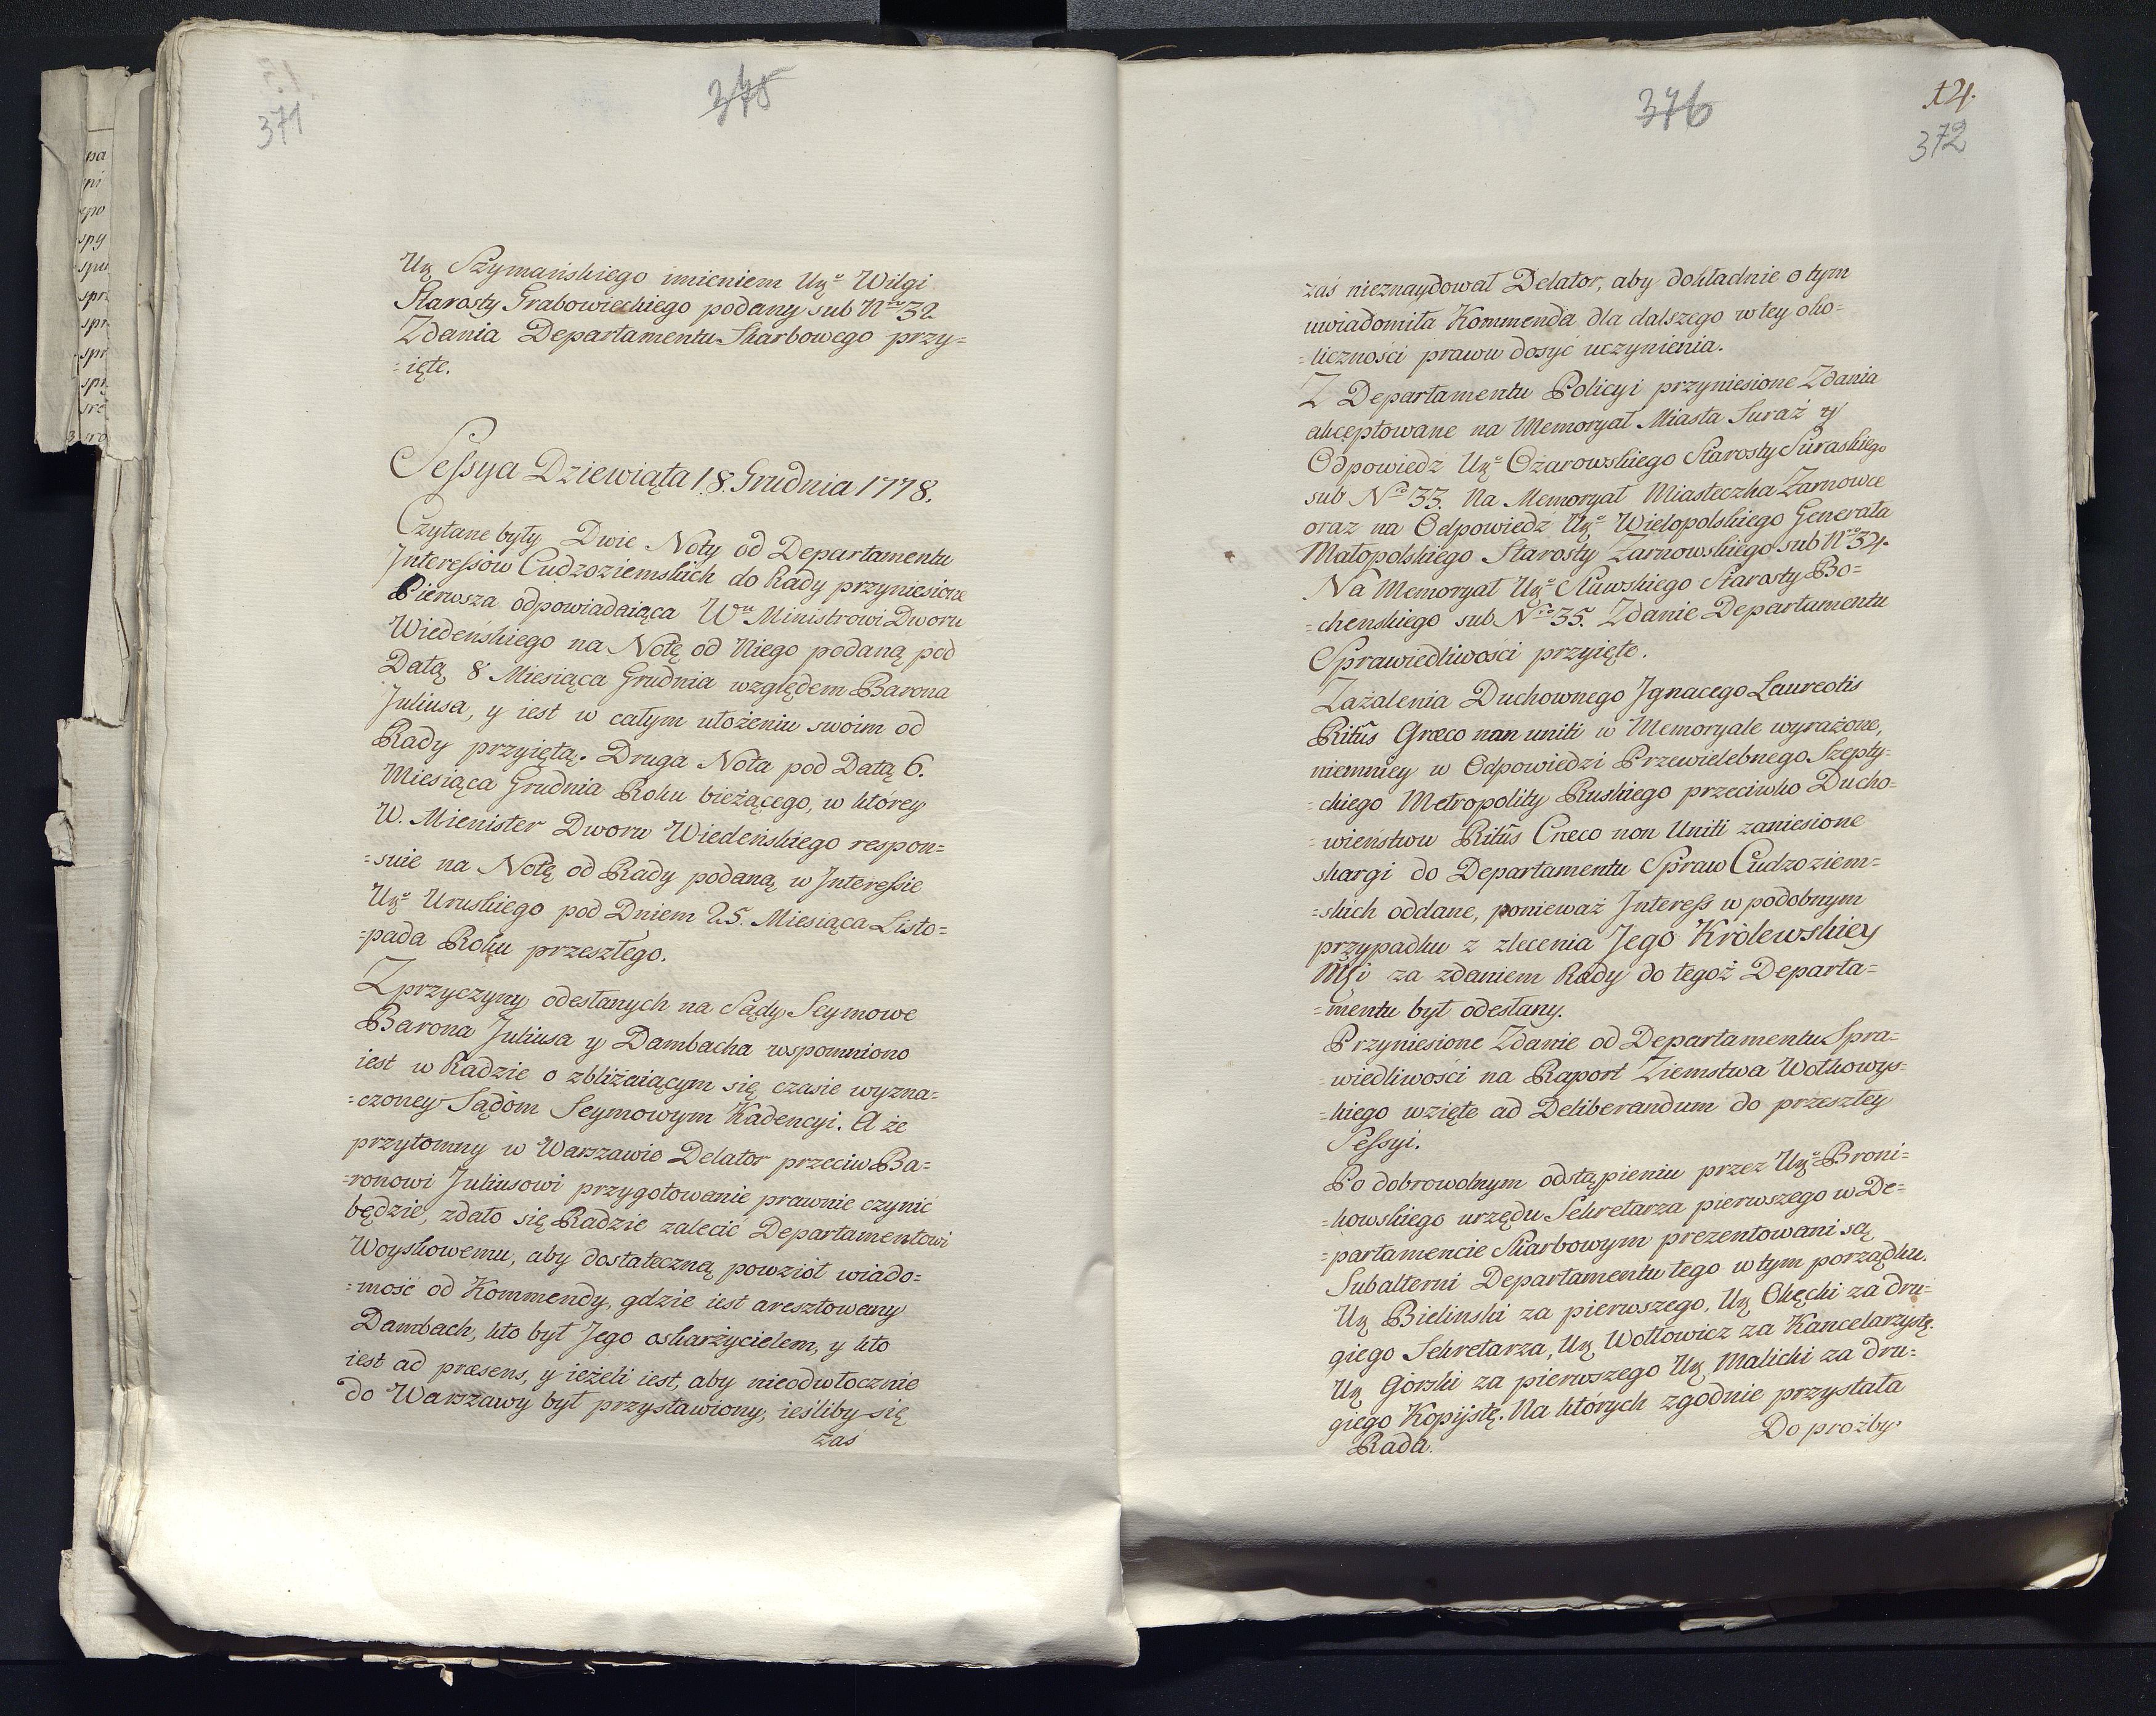 371
375
Ur Szymańskiego imieniem Urº Wilgi
Starosty Grabowieckiego podany sub Nro 32
Zdania Departamentu Skarbowego przy=
=ięte.
Sessya Dziewiąta 18. Grudnia 1778.
Czytane były Dwie Noty od Departamentu
Interessow Cudzoziemskich do Rady przyniesione
Pierwsza odpowiadaiąca Wu Ministrowi Dworu
Wiedeńskiego na Notę od Niego podaną pod
Datą 8 Miesiąca Grudnia względem Barona
Juliusa, y iest w całym ułożeniu swoim od
Rady przyiętą. Druga Nota pod Datą 6.
Miesiąca Grudnia Roku bieżącego, w którey
W. Mienister Dworu Wiedeńskiego respon=
=suie na Notę od Rady podaną w Interessie
Urº Uruskiego pod Dniem 25. Miesiąca Listo=
=pada Roku przeszłego.
Z przyczyny odesłanych na Sądy Seymowe
Barona Juliusa y Dambacha wspomniono
iest w Radzie o zbliżaiącym się czasie wyzna=
=czoney Sądom Seymowym Kadencyi. A że
przytomny w Warszawie Delator przeciw Ba=
=ronowi Juliusowi przygotowanie prawnie czynić
będzie, zdało się Radzie zalecić Departamentowi
Woyskowemu, aby dostateczną powziół wiado=
=mość od Kommendy, gdzie iest aresztowany
Dambach, kto był Jego oskarżycielem, y kto
iest ad præsens, y ieżeli iest, aby nieodwłocznie
do Warszawy był przystawiony, ieśliby się
zaś
376
372
zaś nieznaydował Delator, aby dokładnie o tym
uwiadomiła Kommenda dla dalszego w tey oko=
=liczności prawu dosyć uczynienia.
Z Departamentu Policyi przyniesione Zdania
akceptowane na Memoryał Miasta Suraż y
Odpowiedź Urº Ożarowskiego Starosty Suraskiego
sub Nro 33. Na Memoryał Miasteczka Żarnowce
oraz na Odpowiedź Urº Wielopolskiego Generała
Małopolskiego Starosty Żarnowskiego sub Nro 34.
Na Memoryał Urº Sławskiego Starosty Bo=
=chenskiego sub Nro 35. Zdanie Departamentu
Sprawiedliwości przyięte.
Zażalenia Duchownego Jgnacego Laureotis
Ritûs Græco nan uniti w Memoryale wyrażone,
niemniey w Odpowiedzi Przewielebnego Szepty=
=ckiego Metropolity Ruskiego przeciwko Ducho=
=wieństwu Ritûs Græco non Uniti zaniesione
skargi do Departamentu Spraw Cudzoziem=
=skich oddane, ponieważ Interess w podobnym
przypadku z zlecenia Jego Królewskiey
Mci za zdaniem Rady do tegoż Departa=
=mentu był odesłany.
Przyniesione Zdanie od Departamentu Spra=
=wiedliwości na Raport Ziemstwa Wołkowys=
=kiego wzięte ad Deliberandum do przeszłey
Sessyi.
Po dobrowolnym odstąpieniu przez Urº Broni=
=kowskiego urzędu Sekretarza pierwszego w De=
=partamencie Skarbowym prezentowani są
Subalterni Departamentu tego w tym porządku.
Ur Bielinski za pierwszego, Ur Okęcki za dru=
giego Sekretarza, Ur Wołłowicz za Kancelarzystę.
Ur Górski za pierwszego Ur Malicki za dru=
giego Kopijstę. Na których zgodnie przystała
Rada.
Do proźby